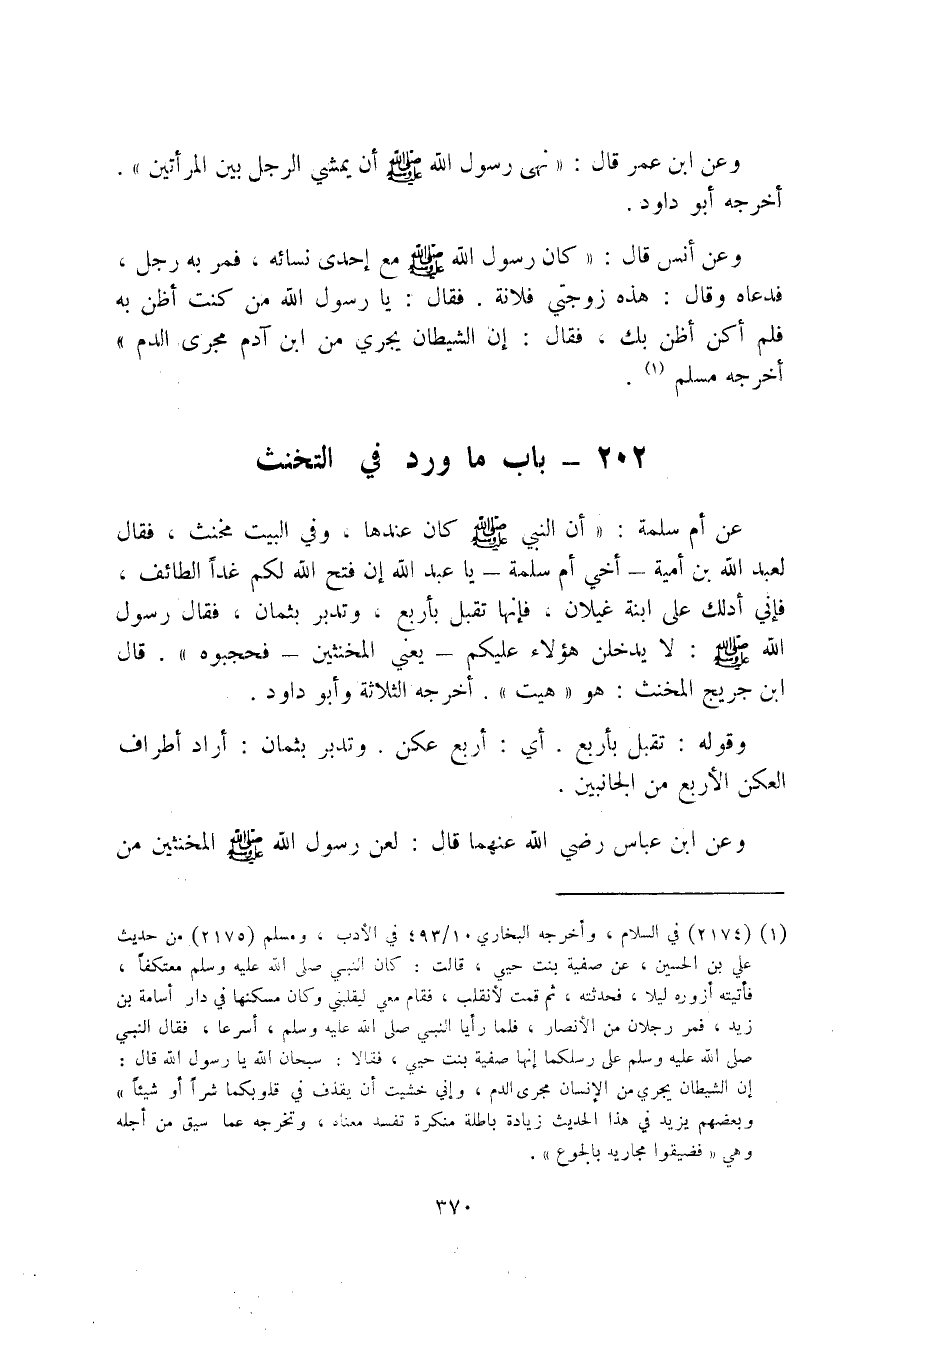 وعن ابن عمر قال : « نهى رسول الله ﷺ أن يمشي الرجل بين المرأتين » .
أخرجه أبو داود .
وعن أنس قال : « كان رسول الله ﷺ مع إحدى نسائه ، فمر به رجل ،
فدعاه وقال : هذه زوجتي فلانة . فقال : يا رسول الله من كنت أظن به
فلم أكن أظن بك ، فقال : إن الشيطان يجري من ابن آدم مجرى الدم »
أخرجه مسلم (١) .
٢٠٢ – باب ما ورد في التخنث
عن أم سلمة : « أن النبي ﷺ كان عندها ، وفي البيت مخنث ، فقال
لعبد الله بن أمية – أخي أم سلمة – يا عبد الله إن فتح الله لكم غداً الطائف ،
فإني أدلك على ابنة غيلان ، فإنها تقبل بأربع ، وتدبر بثمان ، فقال رسول
الله ﷺ : لا يدخلن هؤلاء عليكم – يعني المخنثين – فحجبوه » . قال
ابن جريج المخنث : هو « هيت » . أخرجه الثلاثة وأبو داود .
وقوله : تقبل بأربع . أي : أربع عكن . وتدبر بثمان : أراد أطراف
العكن الأربع من الجانبين .
وعن ابن عباس رضي الله عنهما قال : لعن رسول الله ﷺ المخنثين من
(١) (٢١٧٤) في السلام ، وأخرجه البخاري ٤٩٣/١٠ في الأدب ، ومسلم (٢١٧٥) من حديث
علي بن الحسين ، عن صفية بنت حيي ، قالت : كان النبي صلى الله عليه وسلم معتكفاً ،
فأتيته أزوره ليلا ، فحدثته ، ثم قمت لأنقلب ، فقام معي ليقلبني وكان مسكنها في دار أسامة بن
زيد ، فمر رجلان من الأنصار ، فلما رأيا النبي صلى الله عليه وسلم ، أسرعا ، فقال النبي
صلى الله عليه وسلم على رسلكما إنها صفية بنت حيي ، فقالا : سبحان الله يا رسول الله قال :
إن الشيطان يجري من الإنسان مجرى الدم ، وإني خشيت أن يقذف في قلوبكما شراً أو شيئاً »
وبعضهم يزيد في هذا الحديث زيادة باطلة منكرة تفسد معناه ، وتخرجه عما سيق من أجله
وهي « فضيقوا مجاريه بالجوع » .
٣٧٠